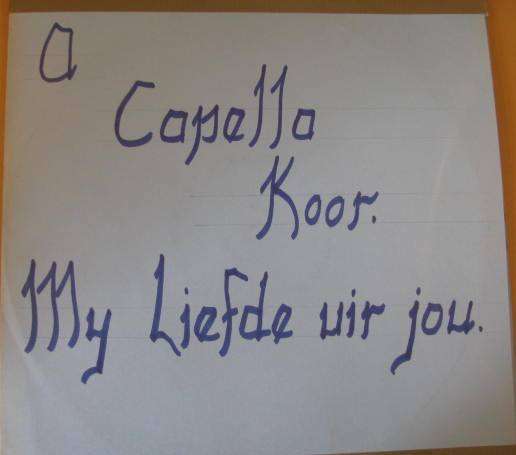 a
Capella
Koor.
My Liefde vir jou.